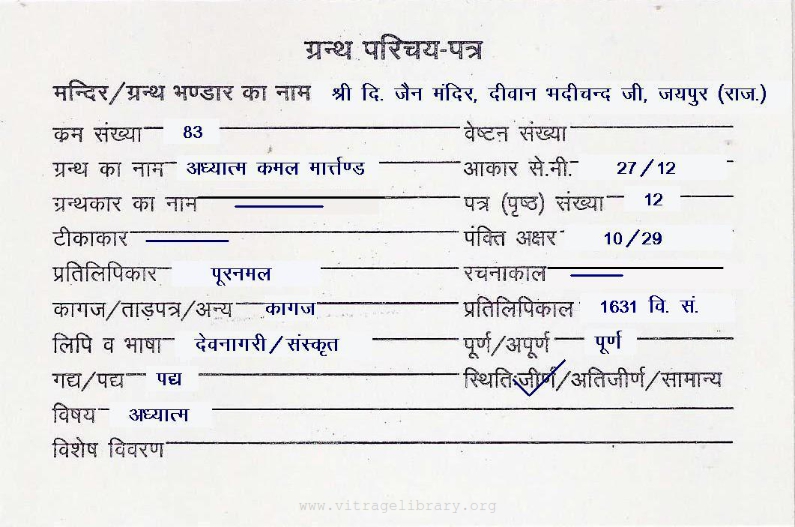 ग्रन्थ परिचय-पत्र
मन्दिर/ग्रन्थ भण्डार का नाम श्री दि. जैन मंदिर, दीवान भदीचन्द जी, जयपुर (राज.)
कम संख्या 83 वेष्टन संख्या
ग्रन्थ का नाम अध्यात्म कमल मार्त्तण्ड आकार से.मी. 27/12
ग्रन्थकार का नाम पत्र (पृष्ठ) संख्या 12
टीकाकार पंक्ति अक्षर 10/29
प्रतिलिपिकार पूरनमल रचनाकाल
कागज/ताड़पत्र/अन्य कागज प्रतिलिपिकाल 1631 वि. सं.
लिपि व भाषा देवनागरी/संस्कृत पूर्ण/अपूर्ण पूर्ण
गद्य/पद्य पद्य स्थितिःजीर्ण/अतिजीर्ण/सामान्य
विषय अध्यात्म
विशेष विवरण
www.vitragelibrary.org